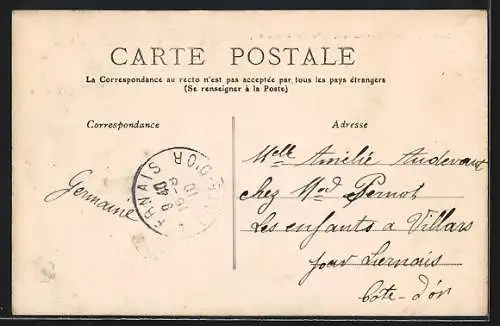 CARTE POSTALE
La Correspondance au recto n'est pas acceptée par tous les pays étrangers
(Se renseigner à la Poste)
Correspondance
Adresse
Germaine
Melle Amélie Audevant
chez Md Pernot
Les enfants a Villars
pour Liernais
Côte-d'or